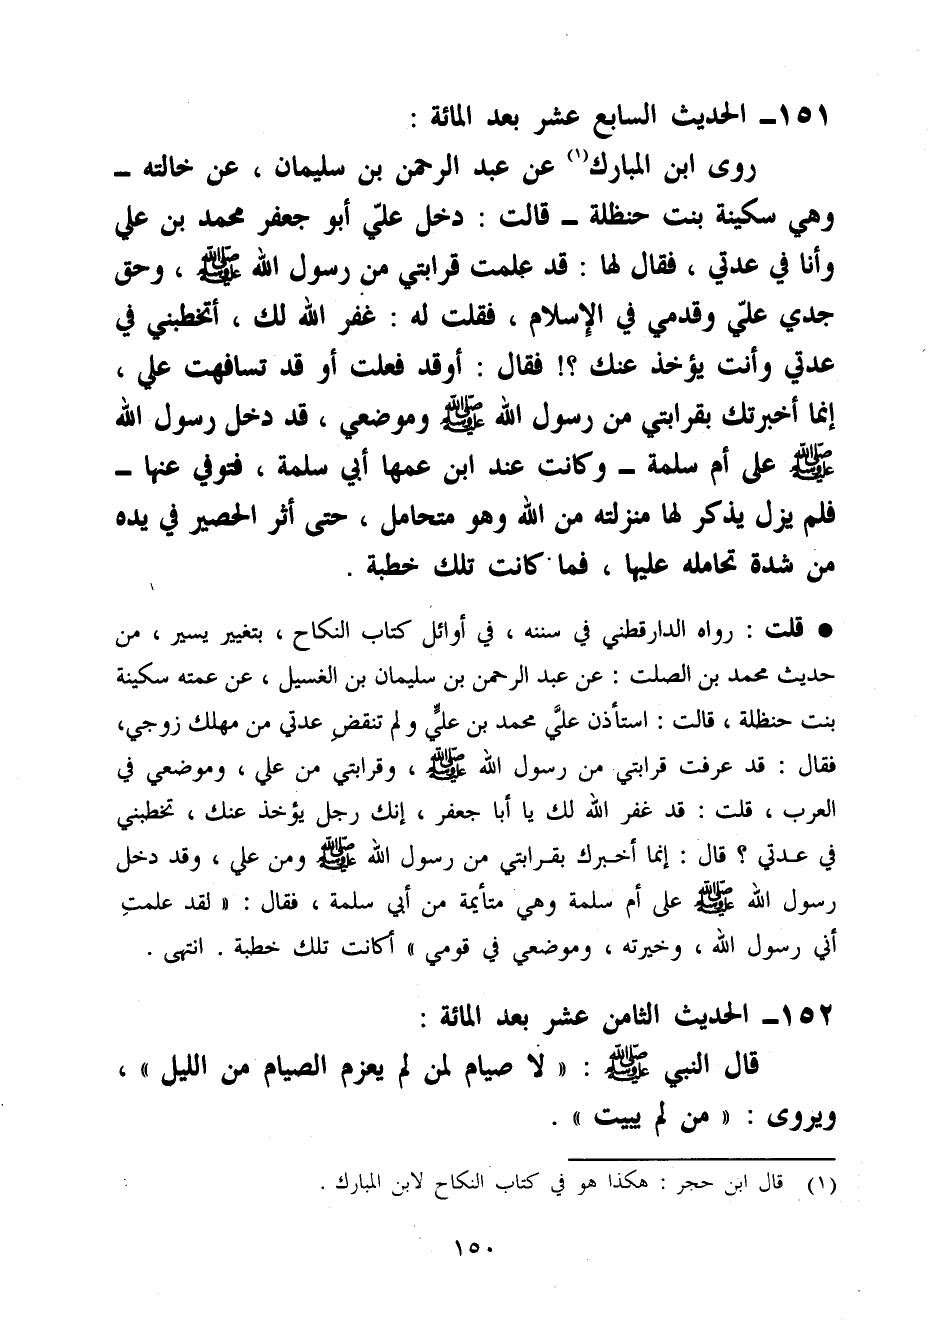 ١٥١ـ الحديث السابع عشر بعد المائة :
روى ابن المبارك(١) عن عبد الرحمن بن سليمان ، عن خالته ـ
وهي سكينة بنت حنظلة ـ قالت : دخل عليّ أبو جعفر محمد بن علي
وأنا في عدتي ، فقال لها : قد علمت قرابتي من رسول الله ﷺ ، وحق
جدي عليّ وقدمي في الإسلام ، فقلت له : غفر الله لك ، أتخطبني في
عدتي وأنت يؤخذ عنك ؟! فقال : أوقد فعلت أو قد تسافهت علي ،
إنما أخبرتك بقرابتي من رسول الله ﷺ وموضعي ، قد دخل رسول الله
ﷺ على أم سلمة ـ وكانت عند ابن عمها أبي سلمة ، فتوفي عنها ـ
فلم يزل يذكر لها منزلته من الله وهو متحامل ، حتى أثر الحصير في يده
من شدة تحامله عليها ، فما كانت تلك خطبة .
● قلت : رواه الدارقطني في سننه ، في أوائل كتاب النكاح ، بتغيير يسير ، من
حديث محمد بن الصلت : عن عبد الرحمن بن سليمان بن الغسيل ، عن عمته سكينة
بنت حنظلة ، قالت : استأذن عليَّ محمد بن عليٍّ ولم تنقضِ عدتي من مهلك زوجي،
فقال : قد عرفت قرابتي من رسول الله ﷺ ، وقرابتي من علي ، وموضعي في
العرب ، قلت : قد غفر الله لك يا أبا جعفر ، إنك رجل يؤخذ عنك ، تخطبني
في عدتي ؟ قال : إنما أخبرك بقرابتي من رسول الله ﷺ ومن علي ، وقد دخل
رسول الله ﷺ على أم سلمة وهي متأيمة من أبي سلمة ، فقال : « لقد علمتِ
أني رسول الله ، وخيرته ، وموضعي في قومي » أكانت تلك خطبة . انتهى .
١٥٢ـ الحديث الثامن عشر بعد المائة :
قال النبي ﷺ : « لا صيام لمن لم يعزم الصيام من الليل » ،
ويروى : « من لم يبيت » .
(١) قال ابن حجر : هكذا هو في كتاب النكاح لابن المبارك .
١٥٠